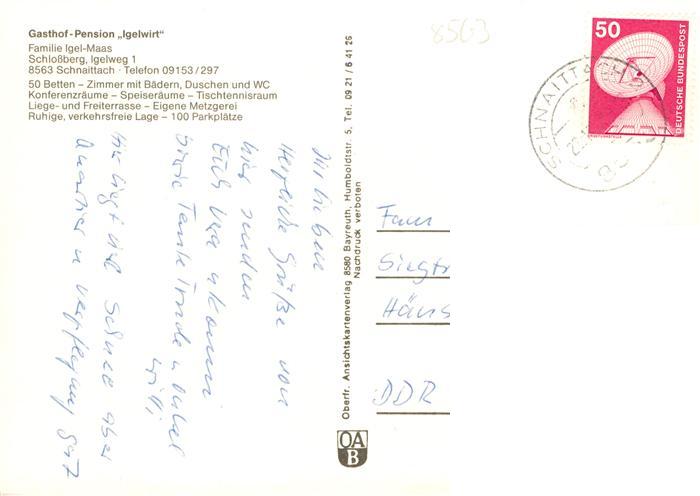 Gasthof-Pension „Igelwirt“
Familie Igel-Maas
Schloßberg, Igelweg 1
8563 Schnaittach · Telefon 09153/297
50 Betten – Zimmer mit Bädern, Duschen und WC
Konferenzräume – Speiseräume – Tischtennisraum
Liege- und Freiterrasse – Eigene Metzgerei
Ruhige, verkehrsfreie Lage – 100 Parkplätze
8563
50
DEUTSCHE BUNDESPOST
SCHNAITTACH
Ihr Lieben
Herzliche Grüße von
hier senden
Euch
Tante Trude u. Onkel
Willi
Hier liegt viel Schnee aber
Quartier u Verpflegung gut
Oberfr. Ansichtskartenverlag 8580 Bayreuth, Humboldtstr. 5, Tel. 09 21 / 6 41 26
Nachdruck verboten
Fam
Siegfr
Häns
DDR
OA
B